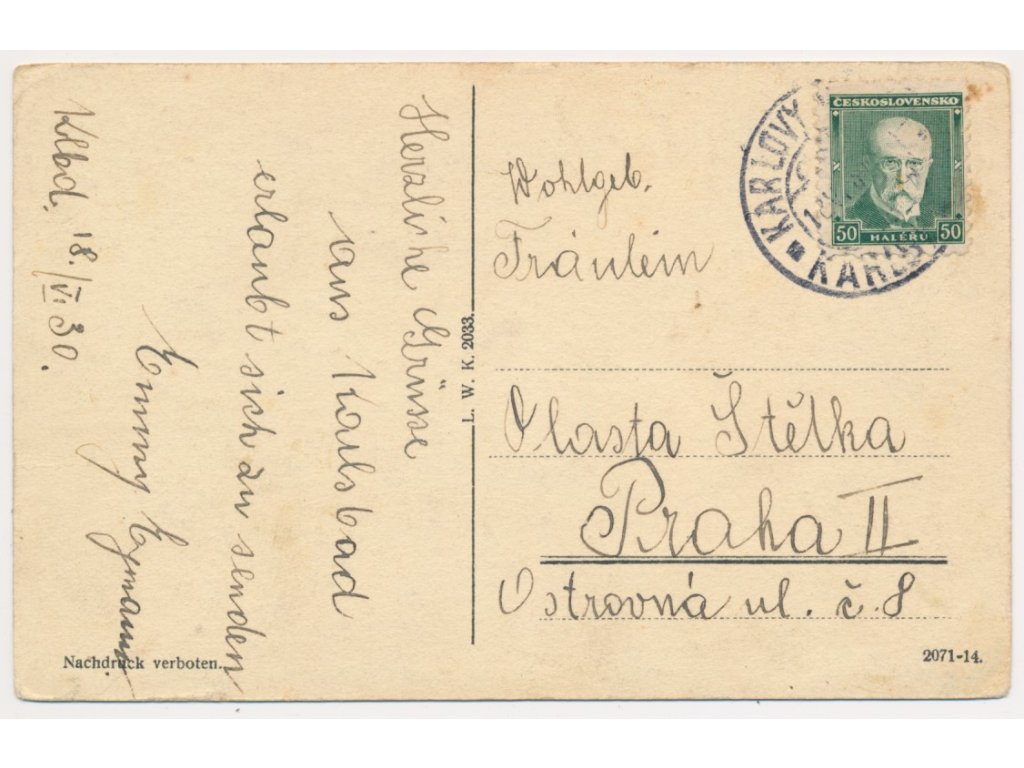 Herzliche Grüsse
aus Karlsbad
erlaubt sich zu senden
Emmy
Klbd. 18./VI. 30.
Nachdruck verboten.
L. W. K. 2033.
ČESKOSLOVENSKO
50 HALÉŘŮ 50
KARLOVY
Wohlgeb.
Fräulein
Vlasta Štětka
Praha II
Ostrovná ul. č. 8
2071-14.